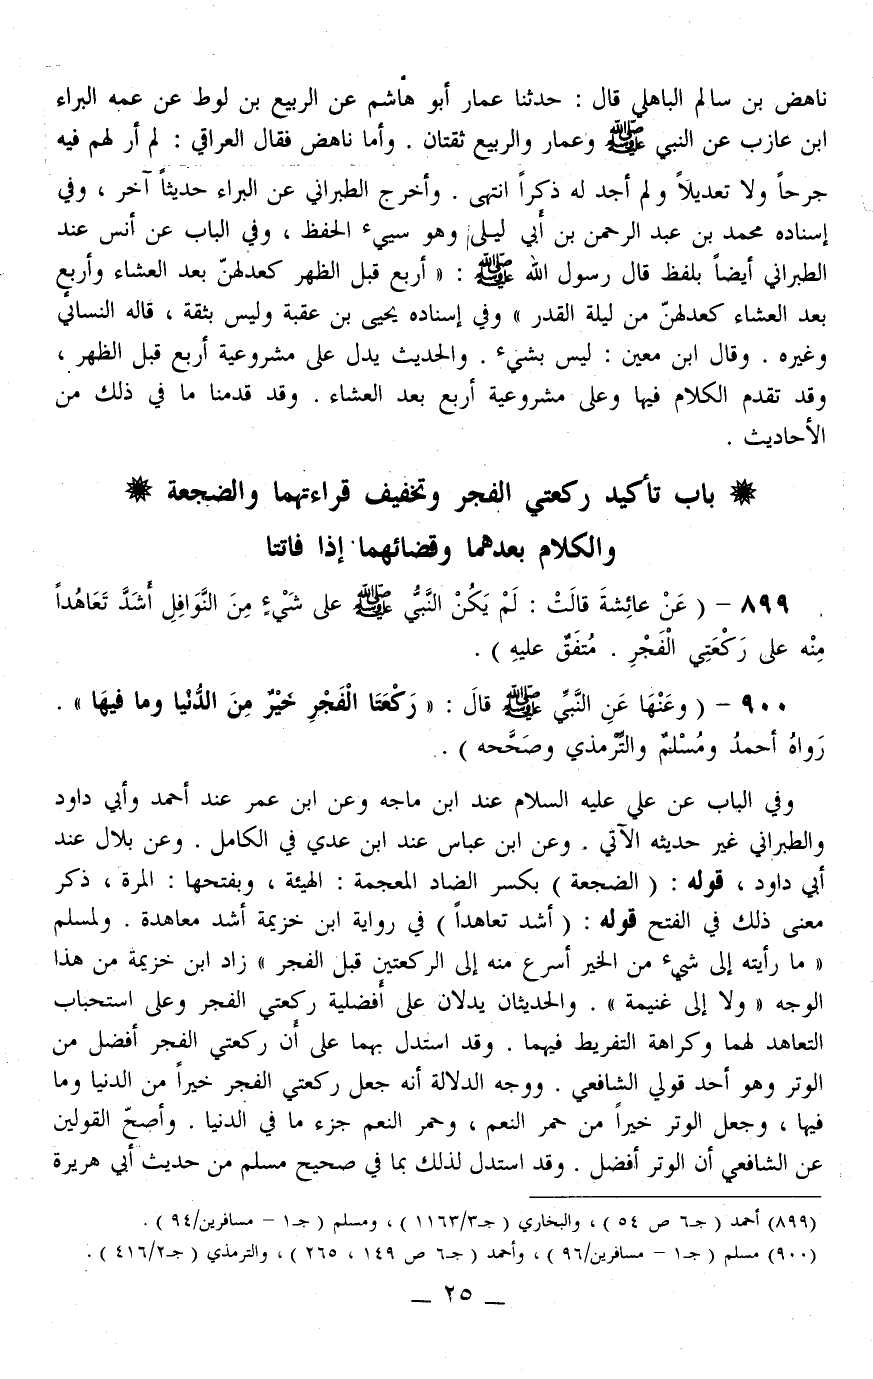 ناهض بن سالم الباهلي قال : حدثنا عمار أبو هاشم عن الربيع بن لوط عن عمه البراء
ابن عازب عن النبي ﷺ وعمار والربيع ثقتان . وأما ناهض فقال العراقي : لم أر لهم فيه
جرحاً ولا تعديلاً ولم أجد له ذكراً انتهى . وأخرج الطبراني عن البراء حديثاً آخر ، وفي
إسناده محمد بن عبد الرحمن بن أبي ليلى وهو سييء الحفظ ، وفي الباب عن أنس عند
الطبراني أيضاً بلفظ قال رسول الله ﷺ : « أربع قبل الظهر كعدلهنّ بعد العشاء وأربع
بعد العشاء كعدلهنّ من ليلة القدر » وفي إسناده يحيى بن عقبة وليس بثقة ، قاله النسائي
وغيره . وقال ابن معين : ليس بشيء . والحديث يدل على مشروعية أربع قبل الظهر ،
وقد تقدم الكلام فيها وعلى مشروعية أربع بعد العشاء . وقد قدمنا ما في ذلك من
الأحاديث .
✵ باب تأكيد ركعتي الفجر وتخفيف قراءتهما والضجعة ✵
والكلام بعدهما وقضائهما إذا فاتتا
٨٩٩ – ( عَنْ عائِشةَ قالَتْ : لَمْ يَكُنْ النَّبيُّ ﷺ على شَيْءٍ مِنَ النَّوَافِلِ أَشَدَّ تَعَاهُداً
مِنْه على رَكْعَتِي الْفَجْرِ . مُتفَقٌ عليهِ ) .
٩٠٠ – ( وعَنْهَا عَنِ النَّبيِّ ﷺ قالَ : « رَكْعَتَا الْفَجْرِ خَيْرٌ مِنَ الدُّنْيا وما فيهَا » .
رَواهُ أحمدُ ومُسْلمٌ والتِّرمذي وصَحَّحه ) .
وفي الباب عن علي عليه السلام عند ابن ماجه وعن ابن عمر عند أحمد وأبي داود
والطبراني غير حديثه الآتي . وعن ابن عباس عند ابن عدي في الكامل . وعن بلال عند
أبي داود ، قوله : ( الضجعة ) بكسر الضاد المعجمة : الهيئة ، وبفتحها : المرة ، ذكر
معنى ذلك في الفتح قوله : ( أشد تعاهداً ) في رواية ابن خزيمة أشد معاهدة . ولمسلم
« ما رأيته إلى شيء من الخير أسرع منه إلى الركعتين قبل الفجر » زاد ابن خزيمة من هذا
الوجه « ولا إلى غنيمة » . والحديثان يدلان على أفضلية ركعتي الفجر وعلى استحباب
التعاهد لهما وكراهة التفريط فيهما . وقد استدل بهما على أن ركعتي الفجر أفضل من
الوتر وهو أحد قولي الشافعي . ووجه الدلالة أنه جعل ركعتي الفجر خيراً من الدنيا وما
فيها ، وجعل الوتر خيراً من حمر النعم ، وحمر النعم جزء ما في الدنيا . وأصحّ القولين
عن الشافعي أن الوتر أفضل . وقد استدل لذلك بما في صحيح مسلم من حديث أبي هريرة
(٨٩٩) أحمد ( جـ٦ ص ٥٤ ) ، والبخاري ( جـ٣/ ١١٦٣ ) ، ومسلم ( جـ١ – مسافرين/ ٩٤ ) .
(٩٠٠) مسلم ( جـ١ – مسافرين/ ٩٦ ) ، وأحمد ( جـ٦ ص ١٤٩ ، ٢٦٥ ) ، والترمذي ( جـ٢/ ٤١٦ ) .
_ ٢٥ _